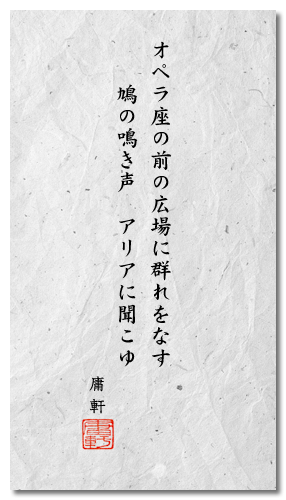 オペラ座の前の広場に群れをなす
鳩の鳴き声　アリアに聞こゆ
庸軒